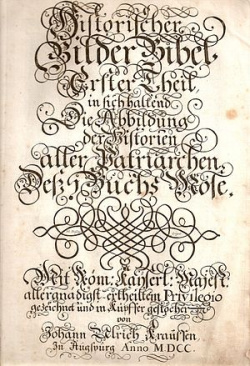 Historischer
Bilder Bibel,
Erster Theil,
in sich haltend
Die Abbildung
der Historien
aller Patriarchen
Deß 1 Buchs Mose.
Mit Röm: Kaÿserl: Majest:
allergnädigst ertheilten Privilegio
gezeichnet und in Kupffer gestochen
von
Johann Ulrich Kraussen,
In Augspurg Anno MDCC.